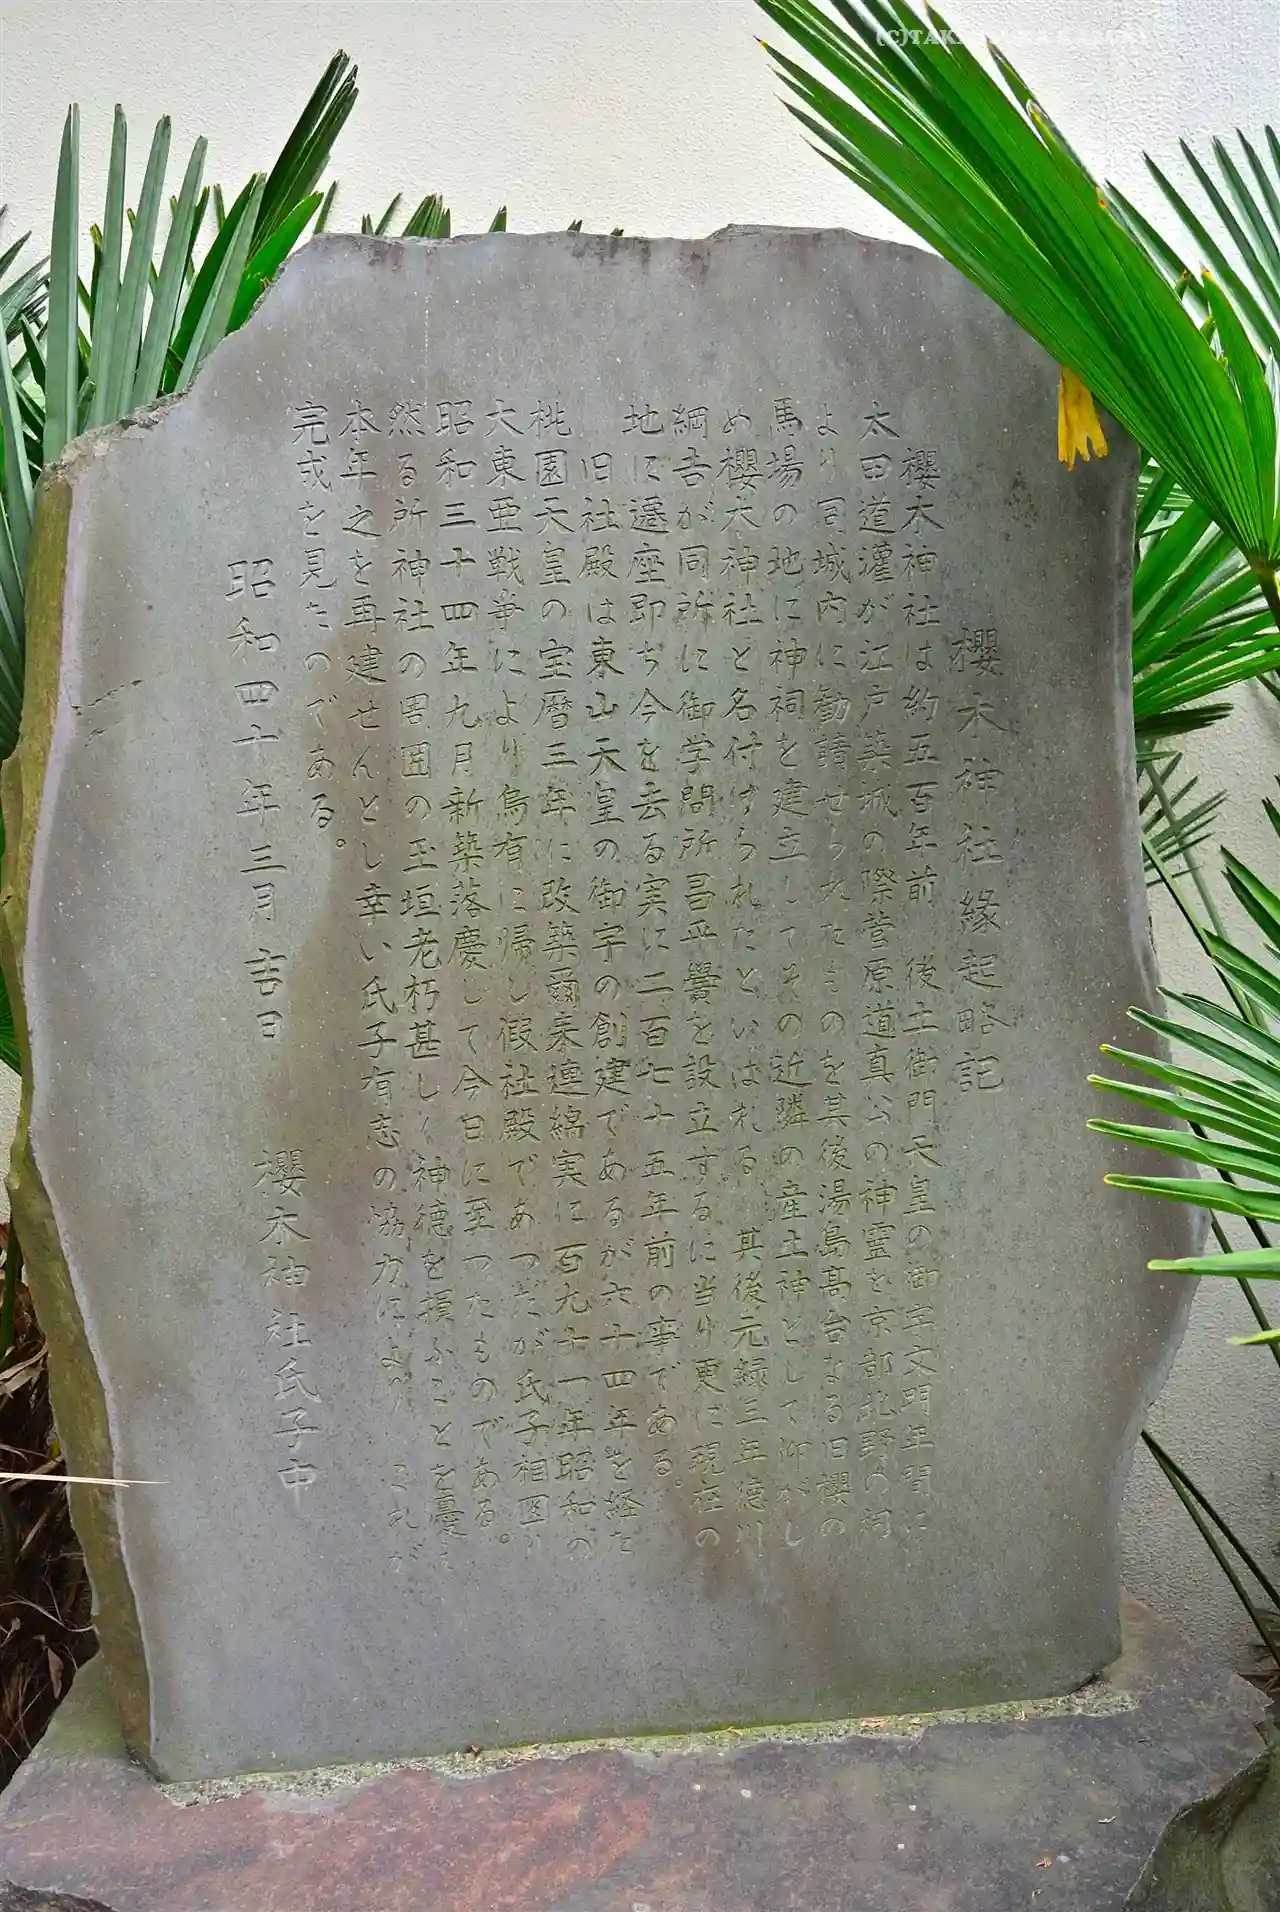 櫻木神社緣起略記
櫻木神社は約五百年前 後土御門天皇の御宇文明年間に
太田道灌が江戸築城の際菅原道真公の神霊を京都北野の祠
より同城内に勧請せられたものを其後湯島高台なる旧櫻の
馬場の地に神祠を建立してその近隣の産土神として仰がし
め櫻木神社と名付けられたといはれる 其後元録三年徳川
綱吉が同所に御学問所昌平黌を設立するに当り更に現在の
地に遷座即ち今を去る実に二百七十五年前の事である。
旧社殿は東山天皇の御宇の創建であるが六十四年を経を
桃園天皇の宝暦三年に改築爾来連綿実に百九十一年昭和の
大東亜戦争により烏有に帰し假社殿であつたが氏子相図り
昭和三十四年九月新築落慶して今日に至つたものである。
然る所神社の周囲の玉垣老朽甚しく神徳を損ふことを憂え
本年之を再建せんとし幸い氏子有志の協力により これが
完成を見たのである。
昭和四十年三月吉日 櫻木神社氏子中
(C)TAK